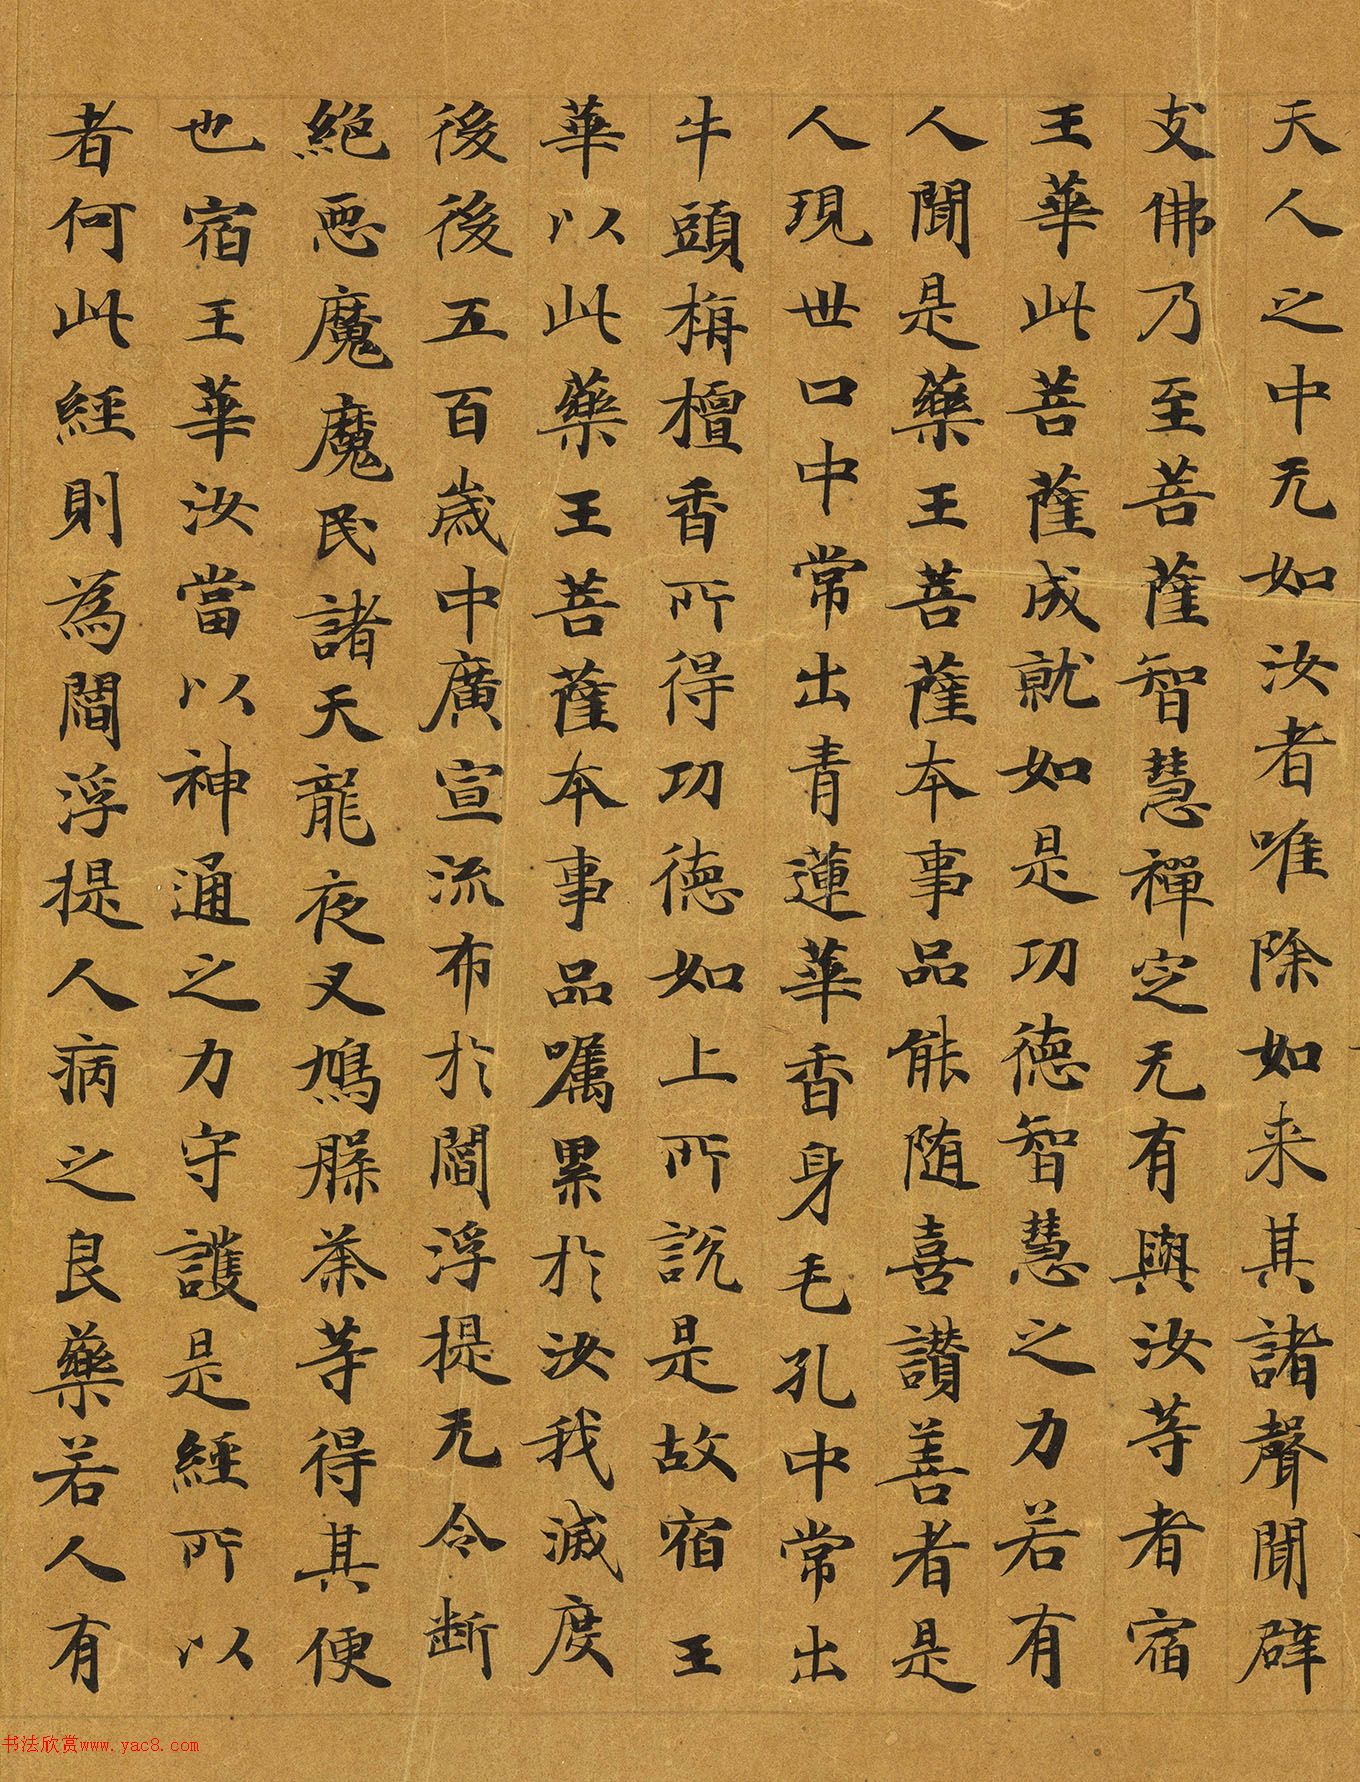 天人之中无如汝者唯除如来其諸聲聞辟
支佛乃至菩薩智慧禪定无有與汝等者宿
王華此菩薩成就如是功德智慧之力若有
人聞是藥王菩薩本事品能随喜讃善者是
人現世口中常出青蓮華香身毛孔中常出
牛頭栴檀香所得功德如上所說是故宿王
華以此藥王菩薩本事品嘱累於汝我滅度
後後五百歲中廣宣流布於閻浮提无令断
絕惡魔魔民諸天龍夜叉鳩槃荼等得其便
也宿王華汝當以神通之力守護是經所以
者何此經則為閻浮提人病之良藥若人有
书法欣赏www.yac8.com